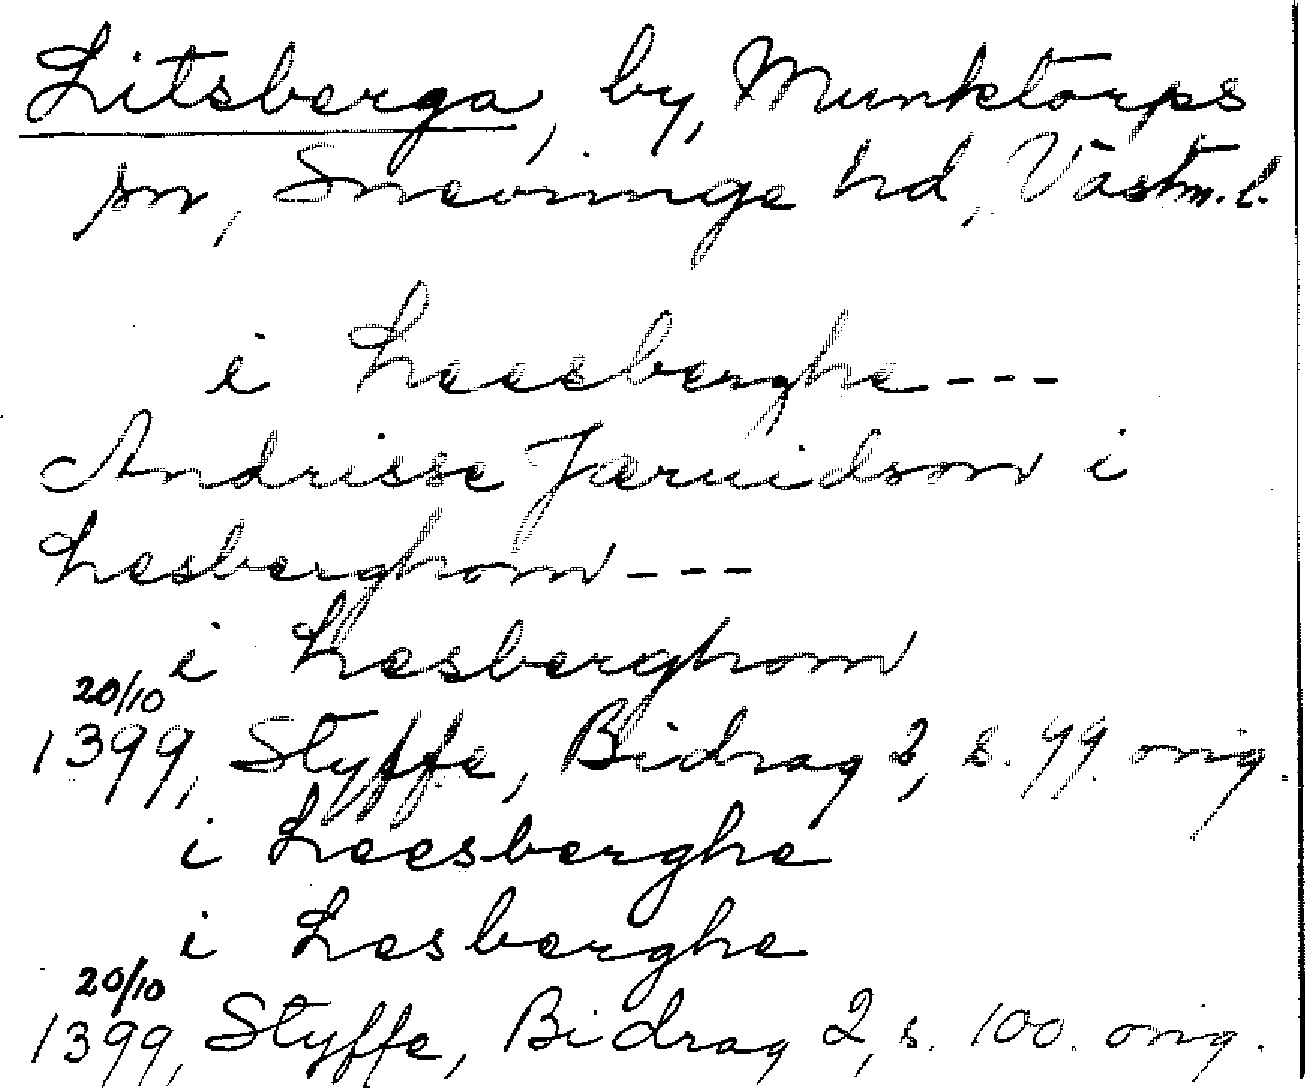 Litsberga, by, Munktorps
sn, Snevringe hd, Västm. l.
i Leesberghe---
Andrisse Jæruidsson i
Lesberghom---
i Lesberghom
20/10
1399, Styffe, Bidrag 2, s. 99. orig.
i Leesberghe
i Lesberghe
20/10
1399, Styffe, Bidrag 2, s. 100. orig.